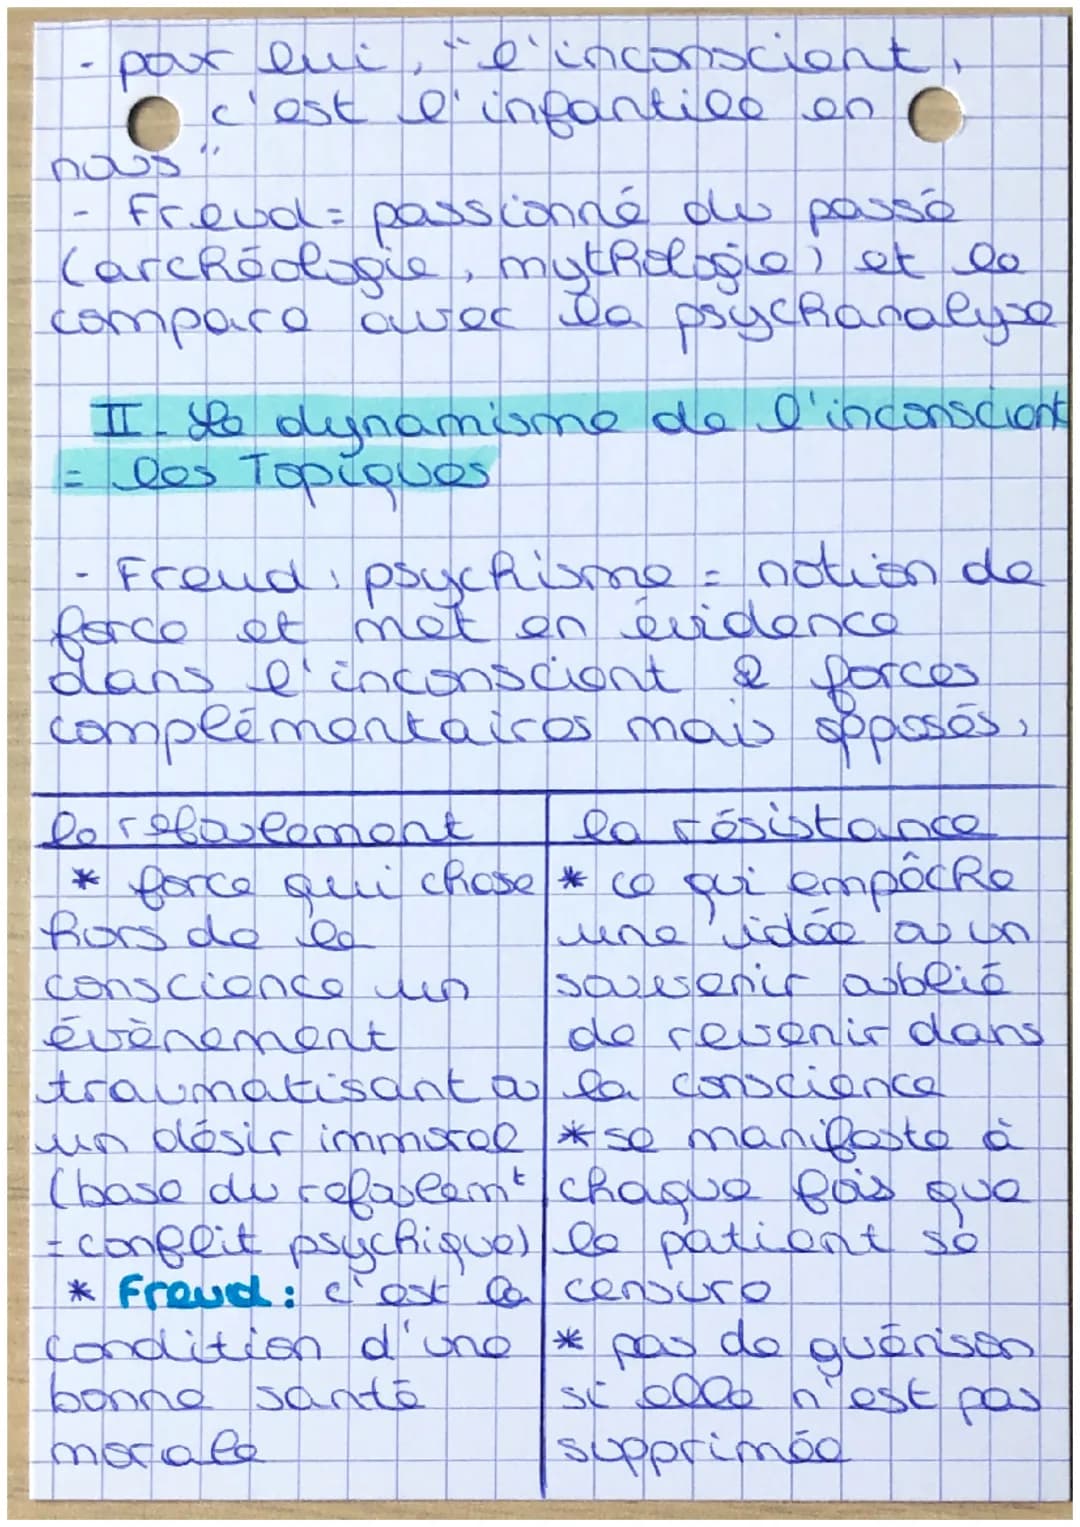 - pour lui, "l'inconscient,
c'est l'infantile en
nous".
- Freud = passionné du passé
(archéologie, mythologie) et le
compare avec la psychanalyse
II - Le dynamisme de l'inconscient
= les Topiques
- Freud : psychisme = notion de
force et met en évidence
dans l'inconscient 2 forces
complémentaires mais opposés :
le refoulement
* force qui chasse
hors de la
conscience un
évènement
traumatisant ou
un désir immoral
(base du refoulemt
= conflit psychique)
* Freud : c'est la
condition d'une
bonne santé
morale
la résistance
* ce qui empêche
une idée ou un
souvenir oublié
de revenir dans
la conscience
* se manifeste à
chaque fois que
le patient se
censure
* pas de guérison
si elle n'est pas
supprimée